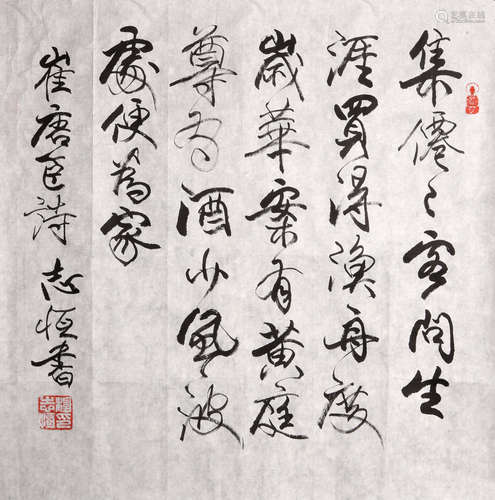 集僊〻客問生
涯買得漁舟度
歲華案有黃庭
尊有酒少風波
處便為家
崔唐臣詩 志恒書